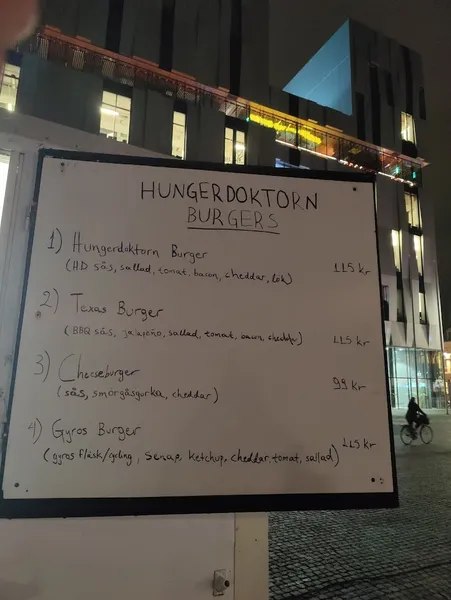 HUNGERDOKTORN
BURGERS
1) Hungerdoktorn Burger
(HD sås, sallad, tomat, bacon, cheddar, lök) 115 kr
2) Texas Burger
(BBQ sås, jalapeño, sallad, tomat, bacon, cheddar) 115 kr
3) Cheeseburger 99 kr
(sås, smörgåsgurka, cheddar)
4) Gyros Burger 115 kr
(gyros fläsk/kyling, senap, ketchup, cheddar, tomat, sallad)